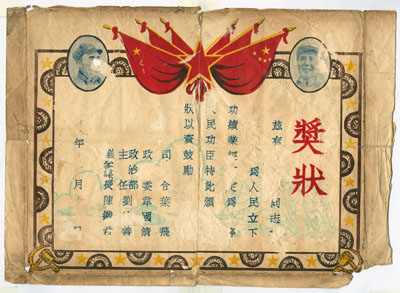 獎狀
茲有 同志
為人民立下
功績業經 為
人民功臣特此頒
狀以資鼓勵
司令葉飛
政委韋國清
政治部 主任劉 善
長陳 君
年 月